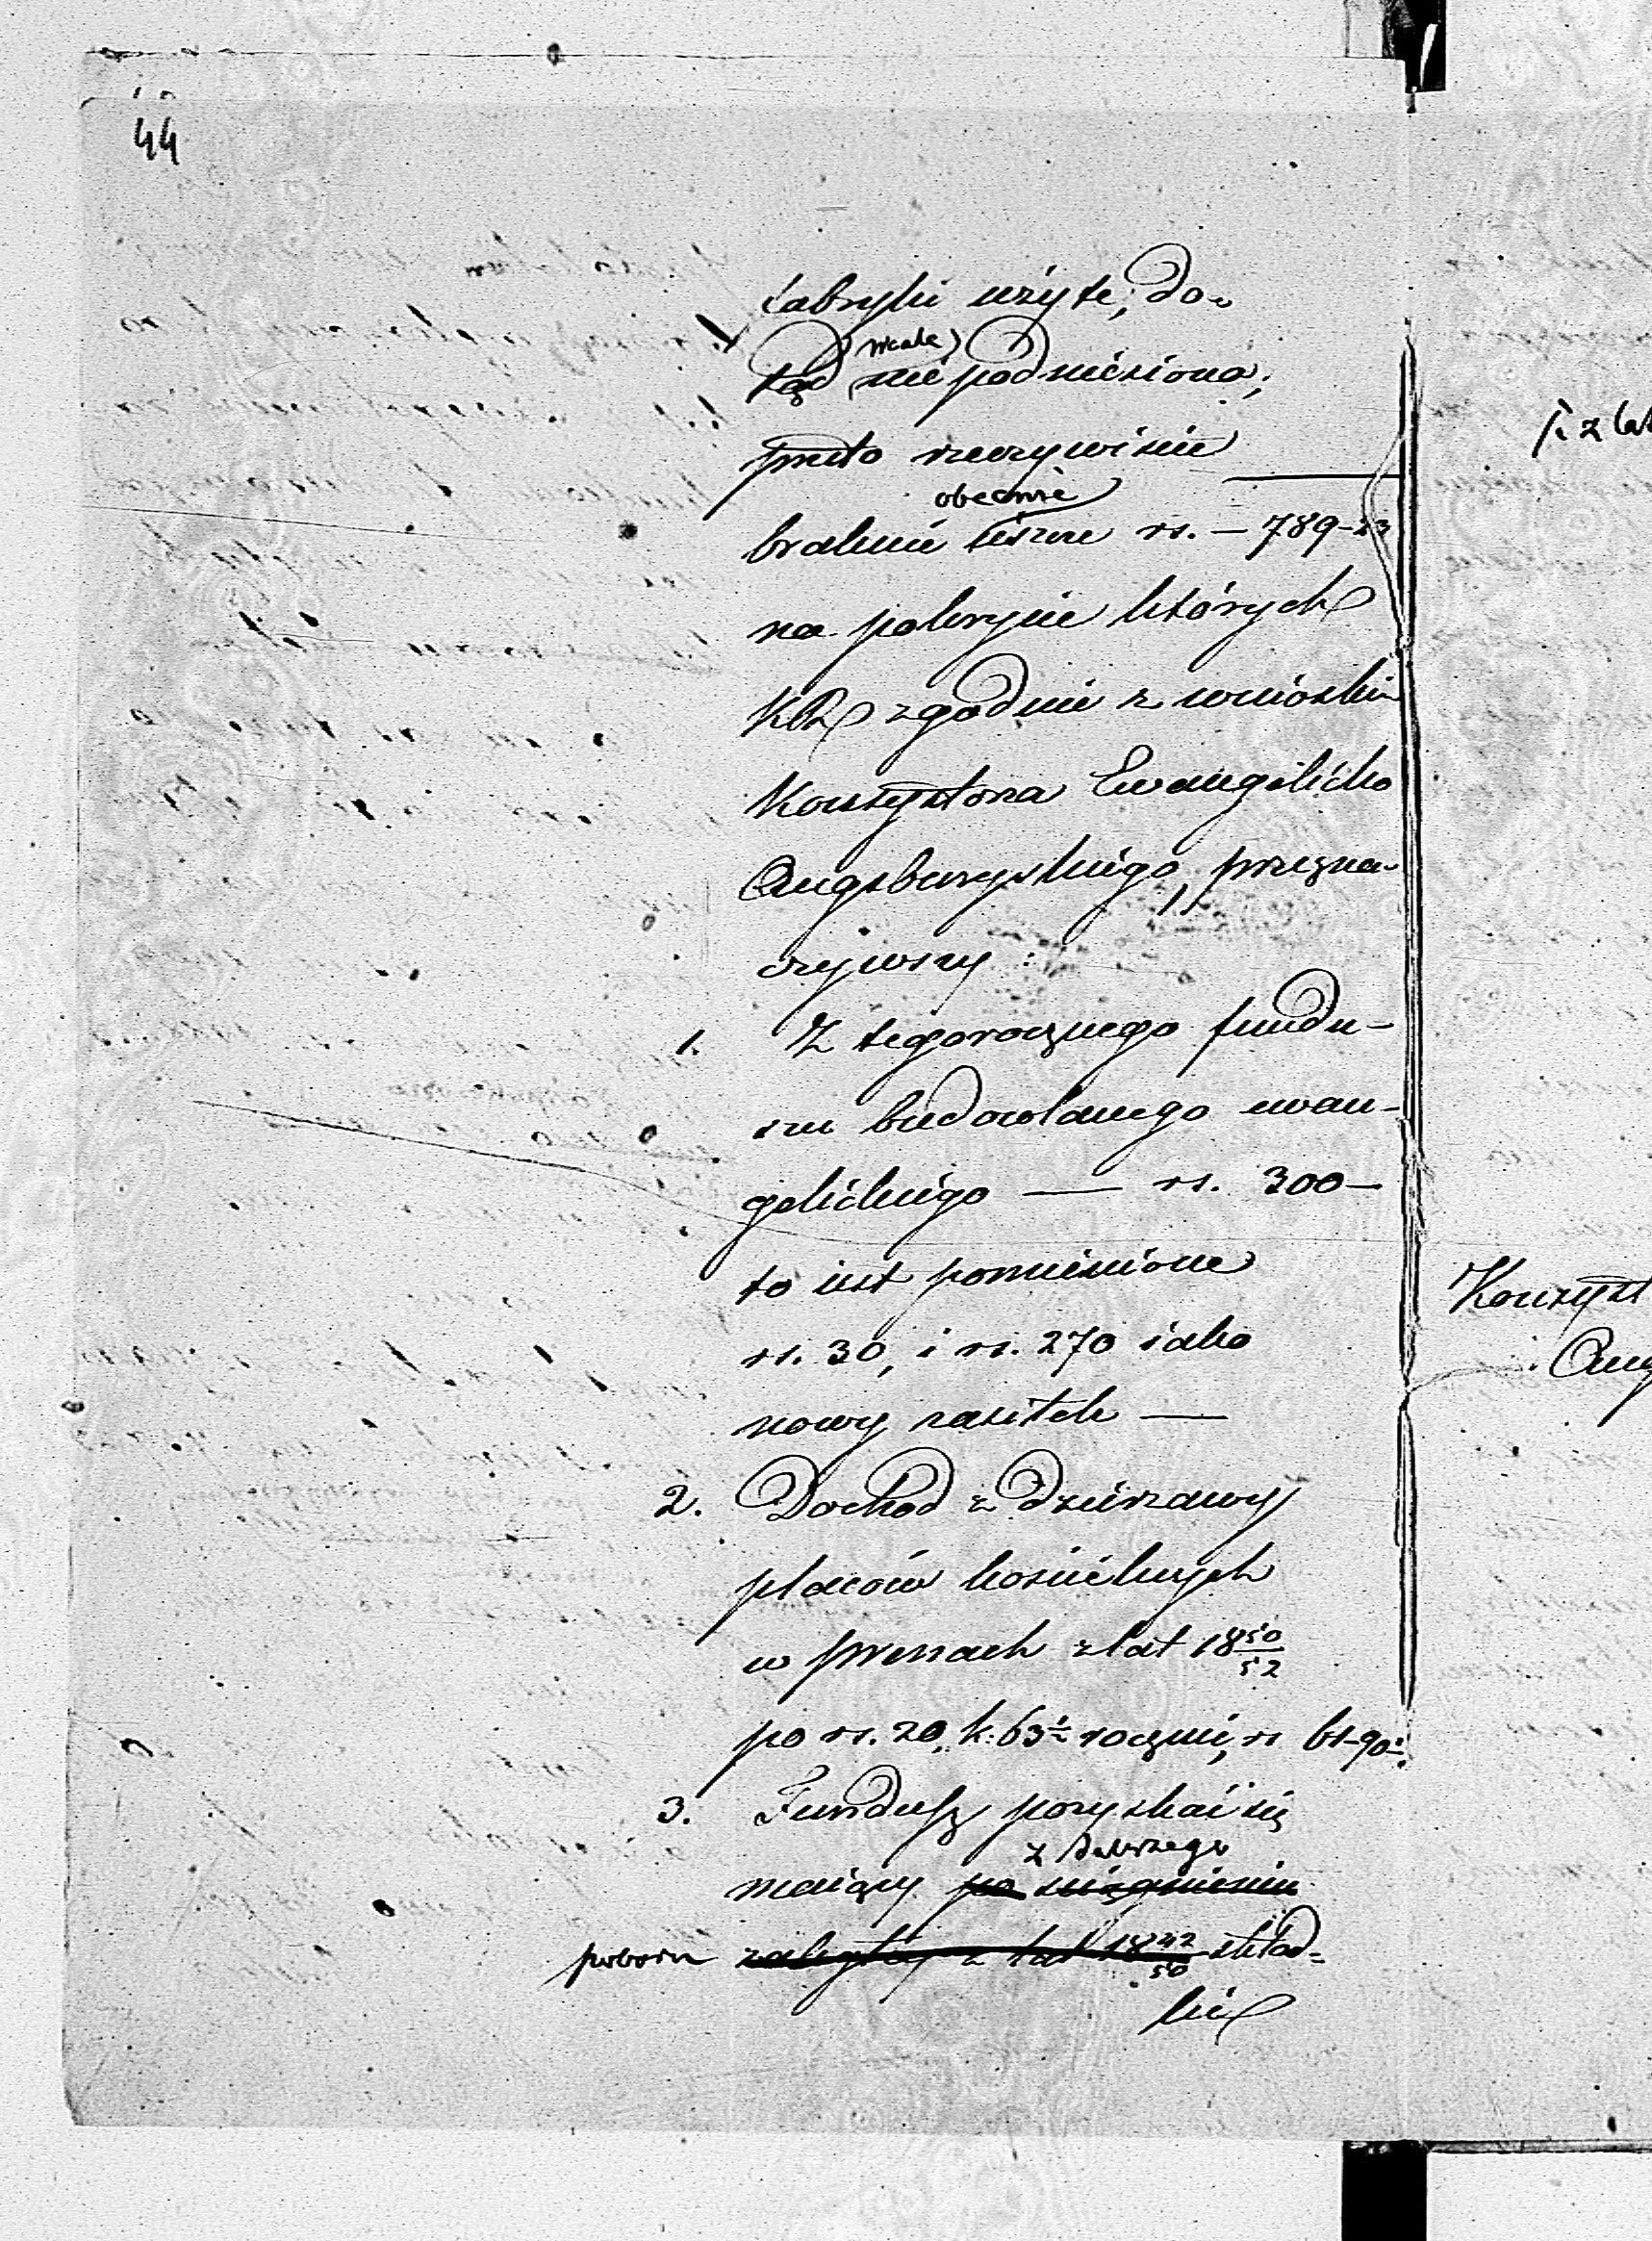 44
fabryki użyte, do-
(wcale)
tąd nie podniesiona;
przeto rzeczywiście
obecnie
brakuie ieszcze rs. — 789-23
na pokrycie których
KR zgodnie z wnioskiem
Konsystorza Ewangelicko
Augsburgskiego, przezna-
czywszy:
1. Z tegorocznego fundu-
szu budowlanego ewan-
gelickiego — rs. 300—
to iest pomienione
rs. 30, i rs. 270 iako
nowy zasiłek —
2. Dochod z dzierzawy
placów kościelnych
w prenach z lat 18 50/52
po rs. 20, k: 63½ rocznie, rs 61-90½
3. Fundusz pozyskać się
z dalszego
maiący po ściągnieniu
poboru zaległey z lat 18 42/50 skład-
ki